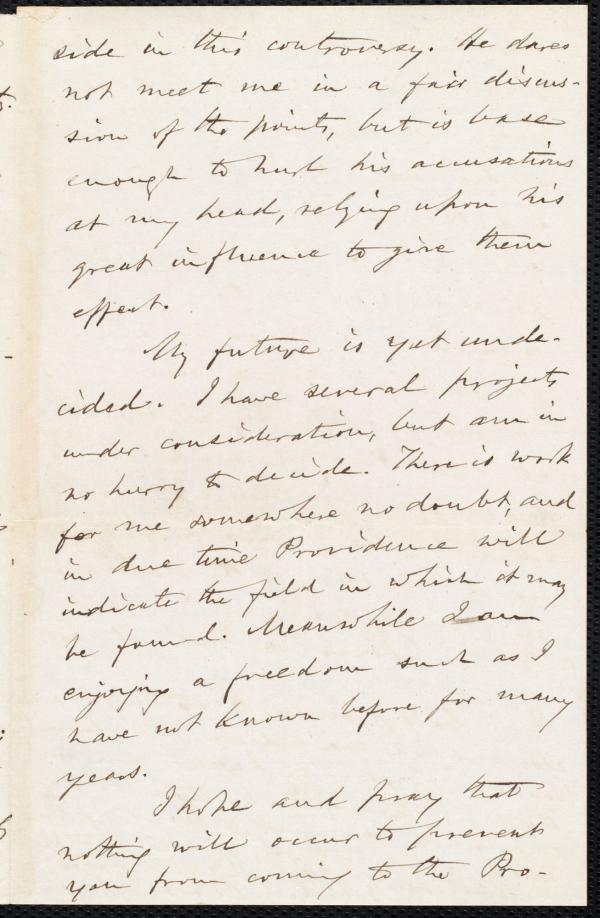 side in this controversy. He dares
not meet me in a fair discus-
sion of the points, but is base
enough to hurl his accusations
at my head, relying upon his
great influence to give them
effect.
My future is yet unde-
cided. I have several projects
under consideration, but am in
no hurry to decide. There is work
for me somewhere no doubt, and
in due time Providence will
indicate the field in which it may
be found. Meanwhile I am
enjoying a freedom such as I
have not known before for many
years.
I hope and pray that
nothing will occur to prevent
you from coming to the Pro-